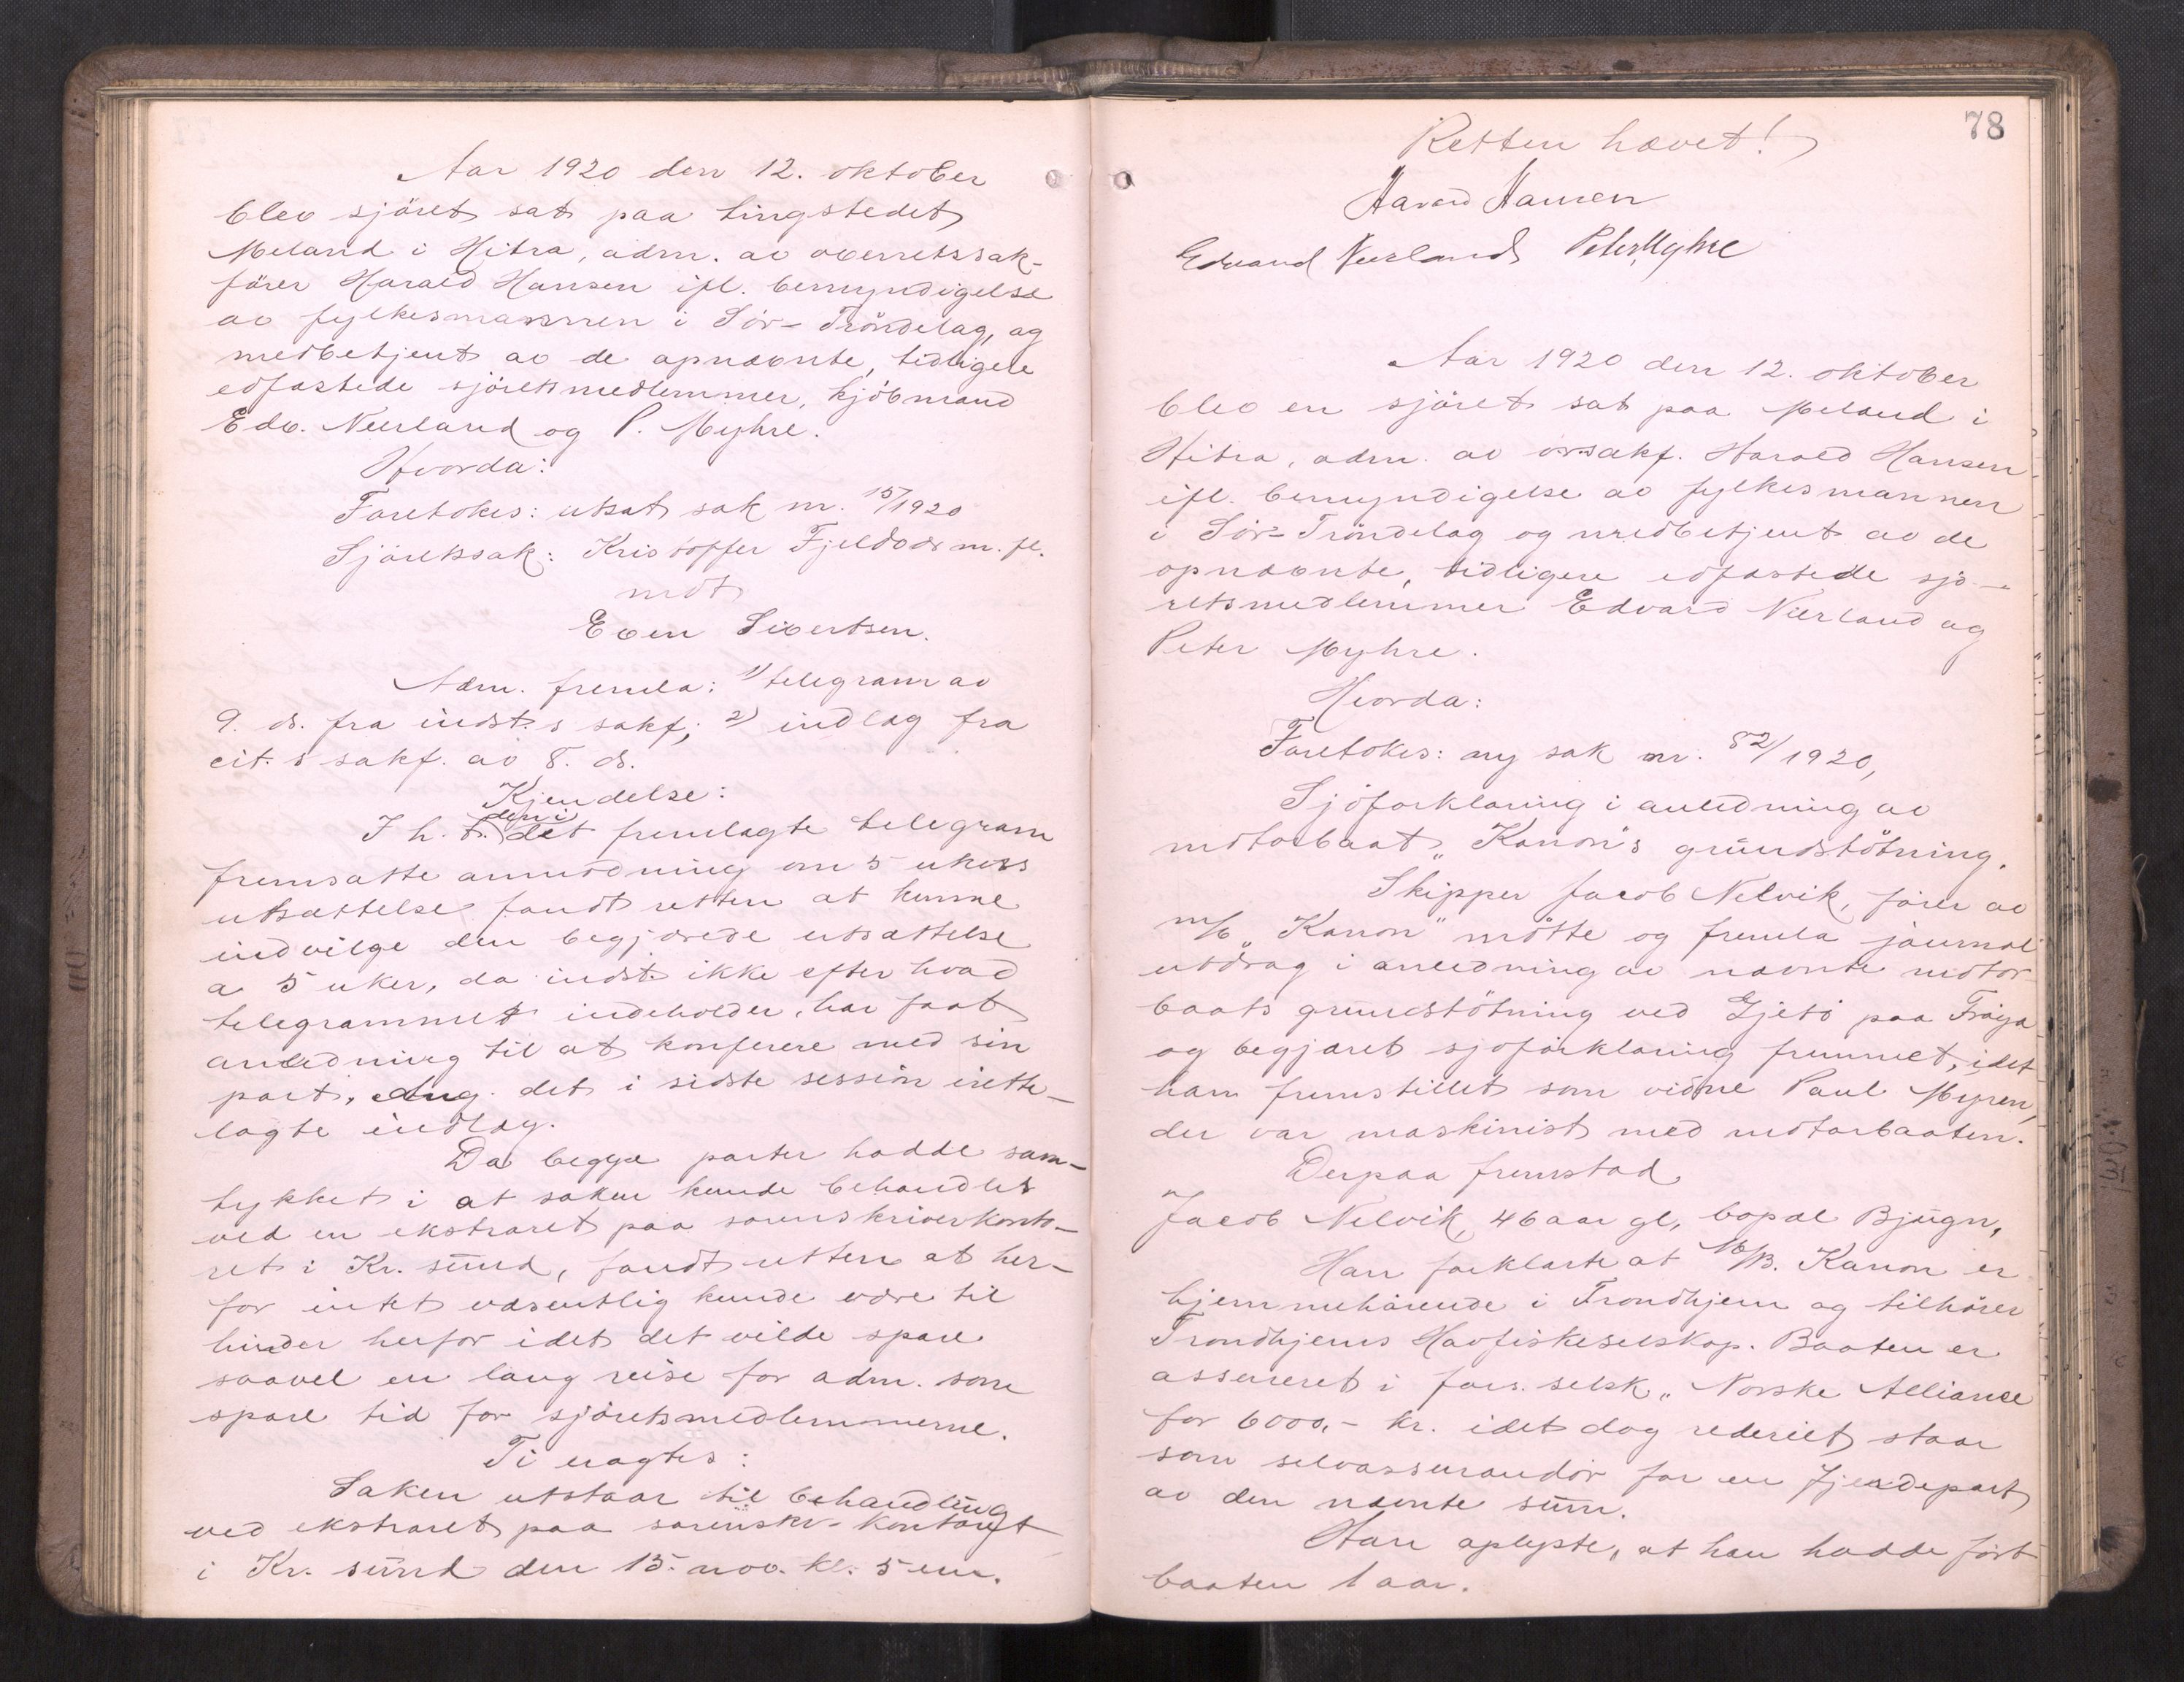 Aar 1920 den 12. oktober
blev sjöret sat paa tingstedet
Meland i Hitra, adm. av overretssak-
förer Harald Hansen ifl. bemyndigelse
av fylkesmannen i Sör-Tröndelag, og
medbetjent av de opnævnte, tidligere
edfæstede sjöretsmedlemmer, kjöbmand
Edv. Neerland og P. Myhre.
Hvorda:
Foretokes: utsat sak nr. 15/1920
Sjöretssak: Kristoffer Fjeldvær m. fl.
mot
Even Sivertsen.
Adm. fremla: 1) telegram av
9. ds. fra indst.s sakf; 2) indlæg fra
cit.s sakf. av 8. ds.
Kjendelse:
den i
I h. t. det fremlagte telegram
fremsatte anmodning om 5 ukers
utsættelse fandt retten at kunne
indvilge den begjærede utsættelse
a 5 uker, da indst. ikke efter hvad
telegrammet indeholder, har faat
anledning til at konferere med sin
part, ang. det i sidste session irette-
lagte indlæg.
Da begge parter hadde sam-
tykket i at saken kunde behandles
ved en ekstraret paa sorenskriverkonto-
ret i Kr. sund, fandt retten at her-
for intet væsentlig kunde være til
hinder herfor idet det vilde spare
saavel en lang reise for adm. som
spare tid for sjöretsmedlemmerne.
Ti eragtes:
Saken utstaar til behandling
ved ekstraret paa sorenskr.-kontoret
i Kr. sund den 15. nov. kl. 5 em.
78
Retten hævet!
Harald Hansen
Edvard Neerland Peter Myhre
Aar 1920 den 12. oktober
blev en sjöret sat paa Meland i
Hitra, adm. av orsakf. Harald Hansen
ifl. bemyndigelse av fylkesmannen
i Sör-Tröndelag og medbetjent av de
opnævnte, tidligere edfæstede sjö-
retsmedlemmer Edvard Neerland og
Peter Myhre.
Hvorda:
Foretokes: ny sak nr. 82/1920,
Sjöforklaring i anledning av
motorbaat "Kanon"s grundstötning.
Skipper Jacob Nelvik, förer av
m/b "Kanon" mötte og fremla journal
utdrag i anledning av nævnte motor-
baats grundstötning ved Gjetö paa Fröya
og begjæret sjöforklaring fremmet, idet
han fremstillet som vidne Paul Myren,
der var maskinist med motorbaaten.
Derpaa fremstod
Jacob Nelvik, 46 aar gl, bopæl Bjugn.
Han forklarte at M/B. Kanon er
hjemmehörende i Trondhjem og tilhörer
Trondhjems Havfiskeselskap. Baaten er
assureret i fors. selsk. "Norske Alliance
for 6000,- kr. idet dog rederiet staar
som selvassurandör for en fjerdepart
av den nævnte sum.
Han oplyste, at han hadde fört
baaten 1 aar.